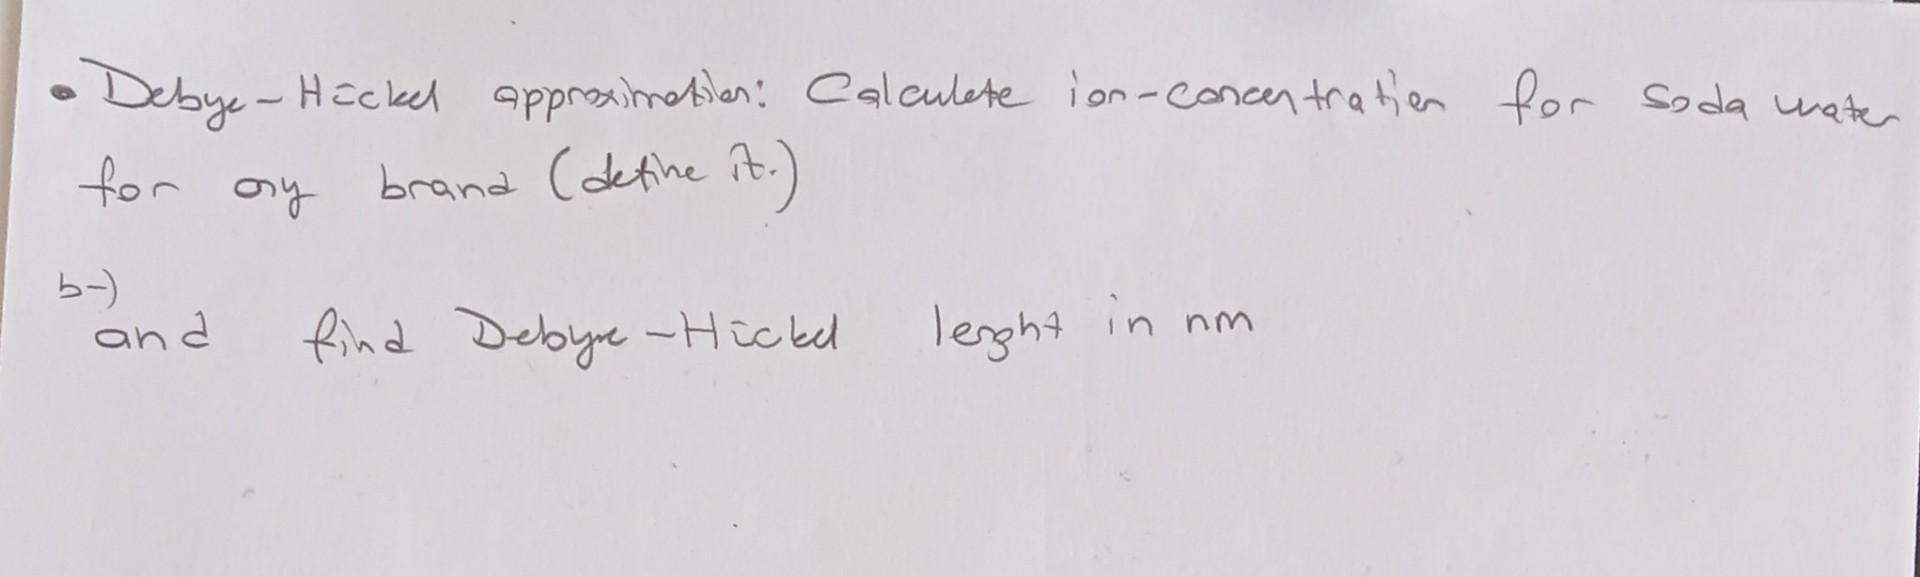 • Debye-Hückel approximation: Calculate ion-concentration for soda water
for any brand (define it.)
b-)
and find Debye-Hückel lenght in nm